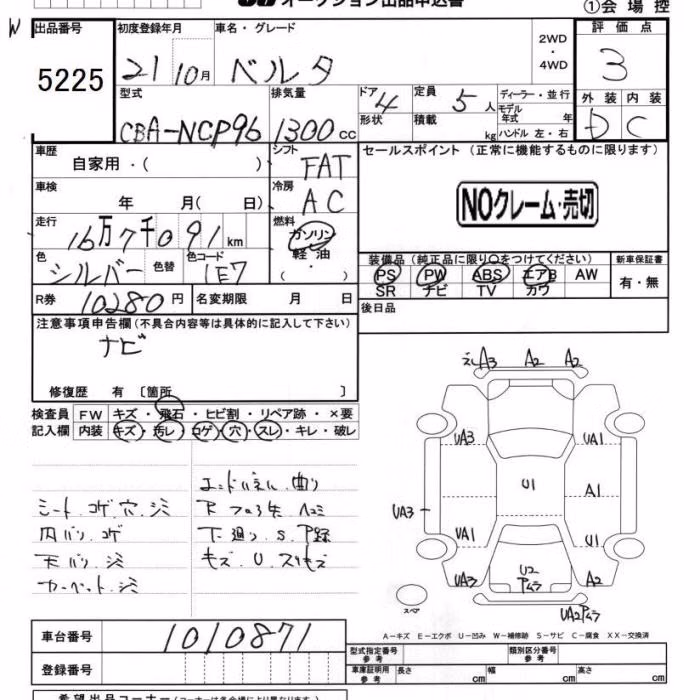 オークション出品申込書
①会場控
W
出品番号 初度登録年月 車名・グレード 2WD・4WD 評価点
5225 21 10月 ベルタ 3
型式 排気量 ドア 定員 ディーラー・並行 外装 内装
CBA-NCP96 1300cc 4 5人 モデル年式 年 D C
形状 積載 kg ハンドル 左・右
車歴 シフト セールスポイント (正常に機能するものに限ります)
自家用・( ) FAT
車検 冷房
年 月( 日) AC NOクレーム・売切
走行 燃料
16万7千091km ガソリン
軽油
( ・ )
色 色替 色コード 装備品 (純正品に限り○をつけてください) 新車保証書
シルバー 1E7 PS PW ABS エアB AW 有・無
SR ナビ TV カワ
R券 10280円 名変期限 月 日 後日品
注意事項申告欄(不具合内容等は具体的に記入して下さい)
ナビ
修復歴 有 〔箇所 〕
検査員 FW キズ・飛石・ヒビ割・リペア跡・×要
記入欄 内装 キズ・汚レ・コゲ・穴・スレ・キレ・破レ
エンドパネル.曲り
シート.コゲ.穴.ジミ
内バリ.コゲ 下廻り.S.P録
天バリ.ジミ キズ.U.スリキズ
カーペット.ジミ
A3 A2 A2
UA3 UA1
U1 A1
UA3
UA1 U1
UA3 U2 Pムラ A2
UA2Pムラ
スペア
A−キズ E−エクボ U−凹み W−補修跡 S−サビ C−腐食 XX−交換済
車台番号 1010871
型式指定番号 参考 類別区分番号 参考
登録番号 車庫証明用 参考 長さ cm 幅 cm 高さ cm
希望出品コーナー